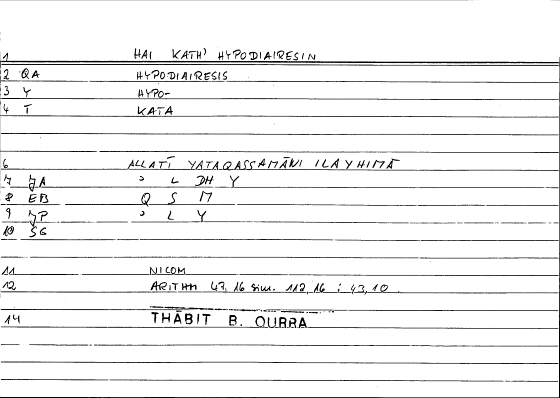 1 HAI KATH' HYPODIAIRESIN
2 QA HYPODIAIRESIS
3 Y HYPO-
4 T KATA
6 ALLATĪ YATAQASSAMĀNI ILAYHIMĀ
7 JA ' L DH Y
8 EB Q S M
9 JP ' L Y
10 SG
11 NICOM
12 ARITHM 43,16 sim. 112,16 ; 43,10.
14 THĀBIT B. QURRA